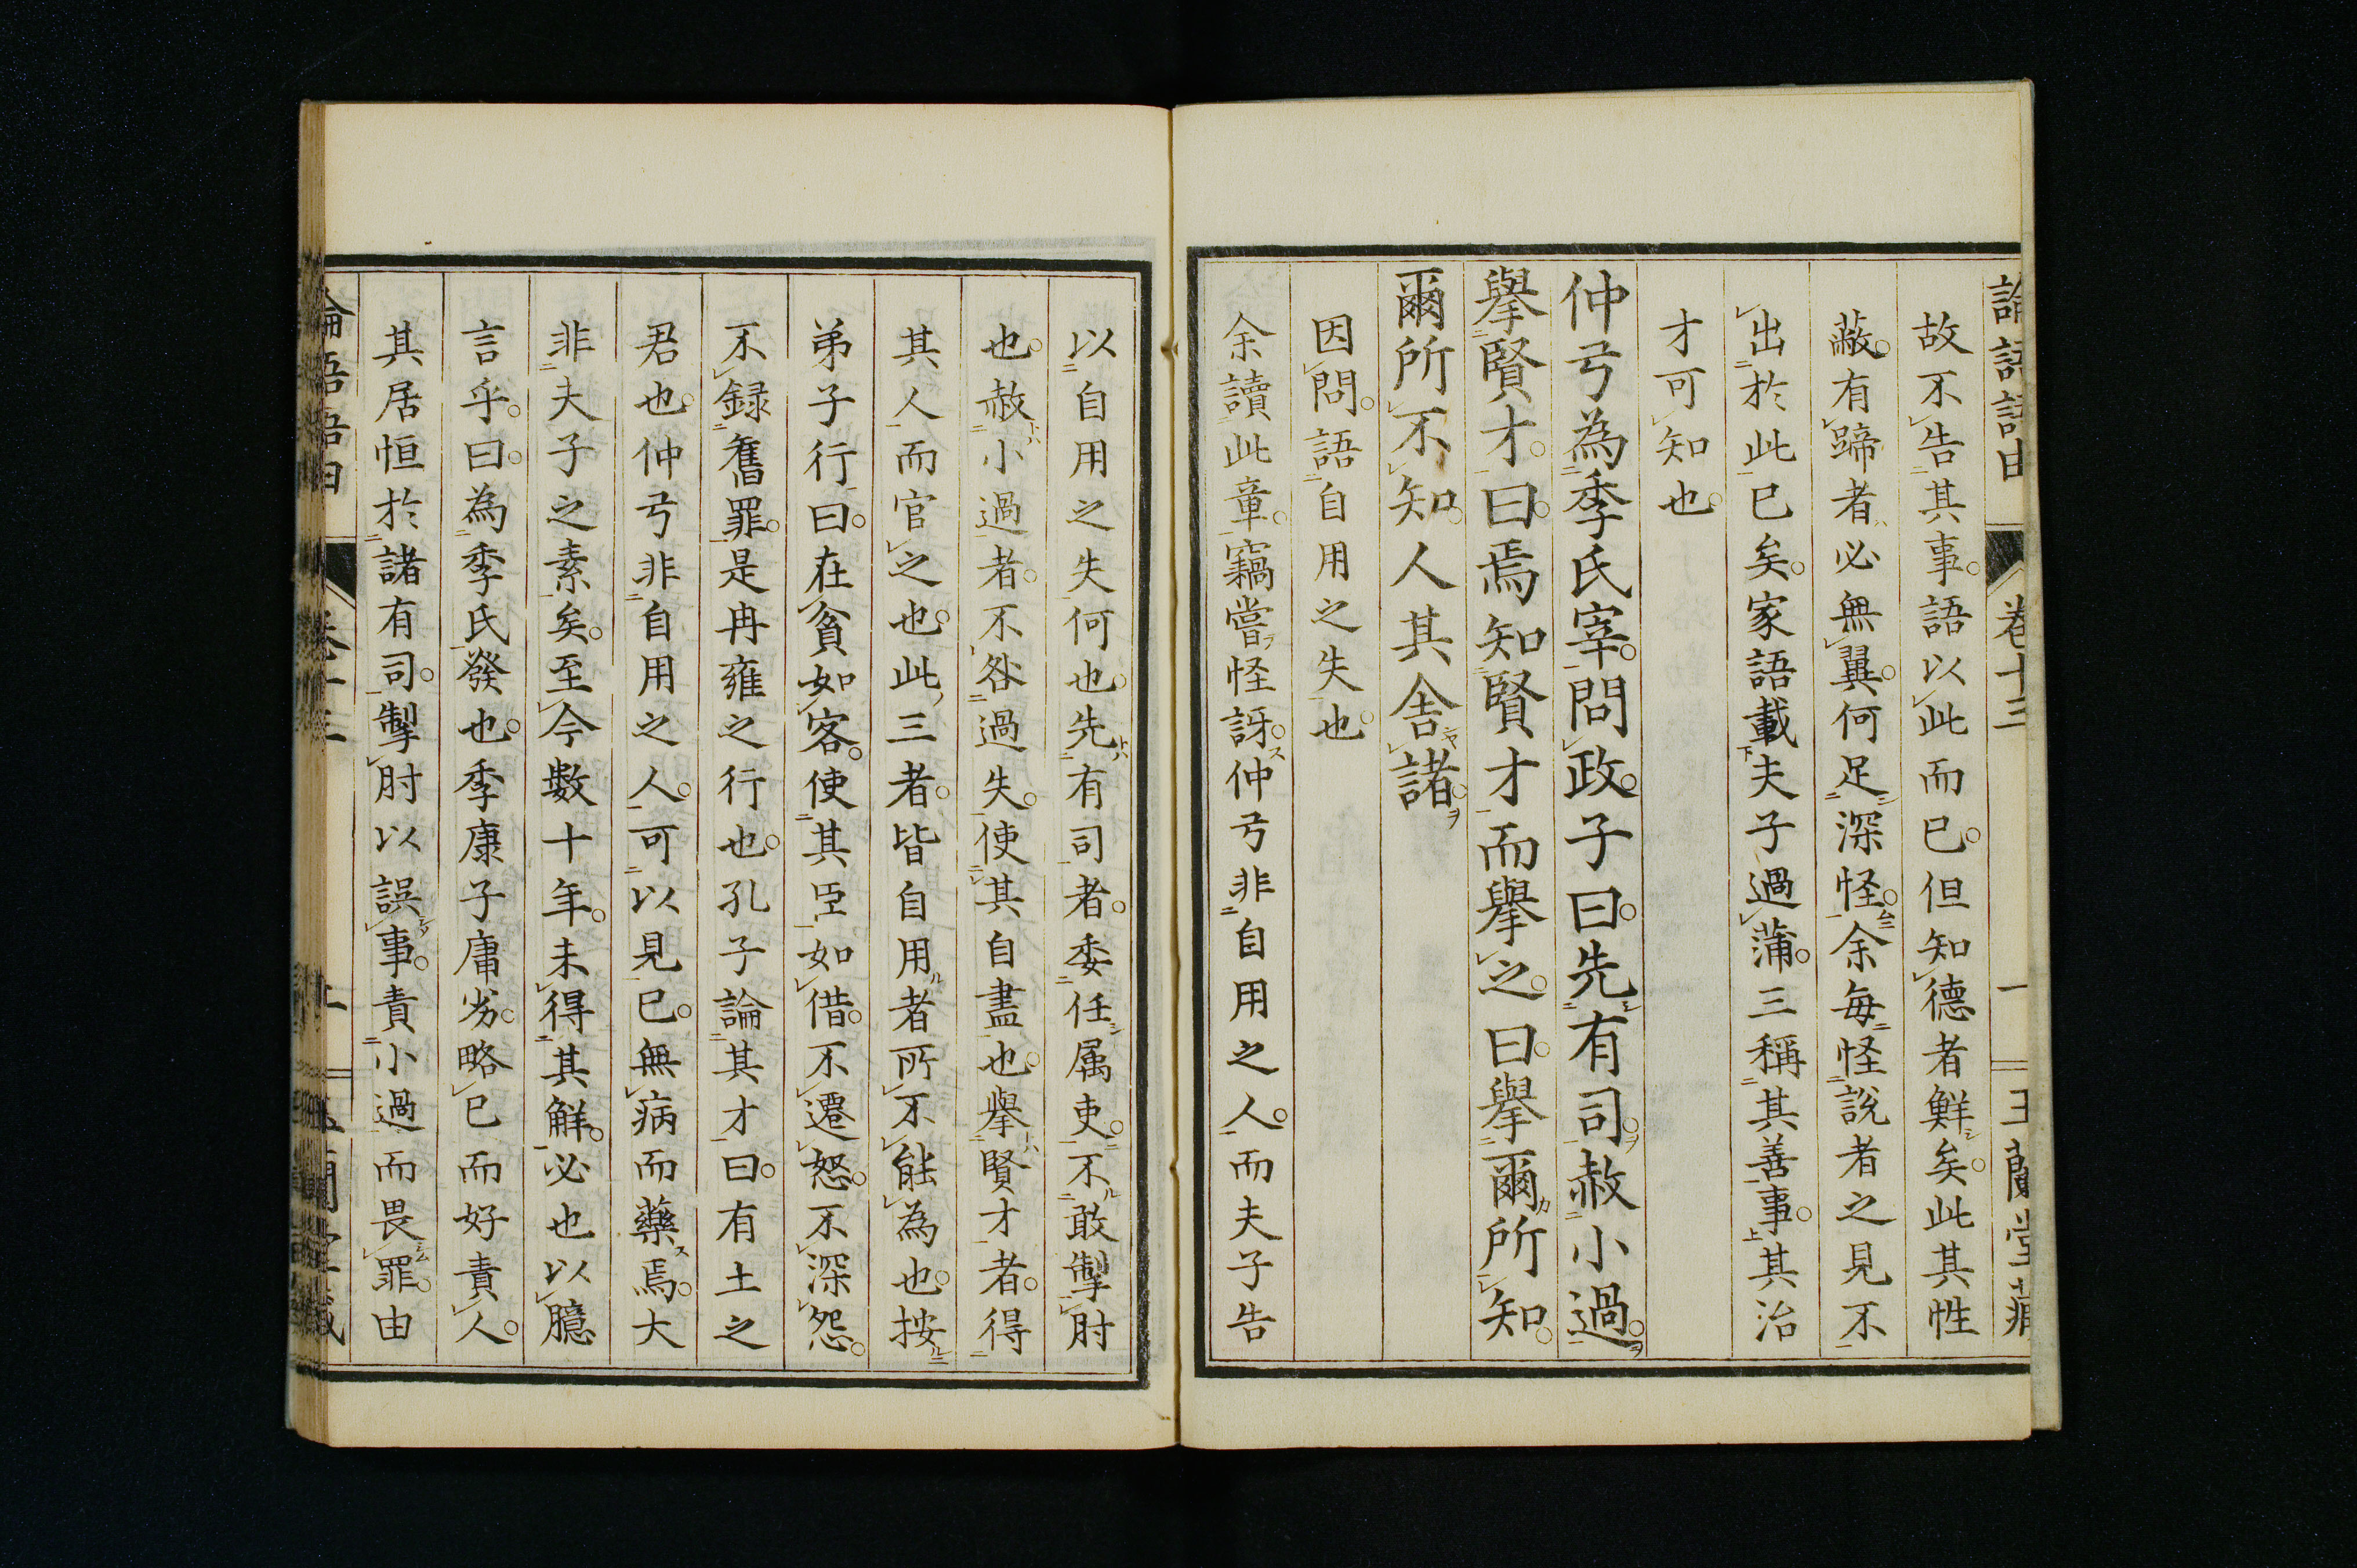 論語語由 卷十三 一 玉蘭堂藏
故不告其事。語以此而已。但知德者鮮矣。此其性
蔽。有蹄者必無翼。何足深怪。余每怪說者之見不
出於此已矣。家語載夫子過蒲。三稱其善事。其治
才可知也。
仲弓為季氏宰。問政。子曰。先有司。赦小過。
擧賢才。曰。焉知賢才而擧之。曰。擧爾所知。
爾所不知。人其舍諸。
因問。語自用之失也。
余讀此章。竊嘗怪訝。仲弓非自用之人。而夫子告
以自用之失何也。先有司者。委任属吏。不敢掣肘
也。赦小過者。不咎過失。使其自盡也。擧賢才者。得
其人而官之也。此三者。皆自用者所不能為也。按
弟子行曰。在貧如客。使其臣如借。不遷怒。不深怨。
不録舊罪。是冉雍之行也。孔子論其才曰。有土之
君也。仲弓非自用之人。可以見已。無病而藥焉。大
非夫子之素矣。至今數十年。未得其解。必也以臆
言乎。曰。為季氏發也。季康子庸劣。略已而好責人。
其居恒於諸有司。掣肘以誤事。責小過而畏罪。由
論語語由